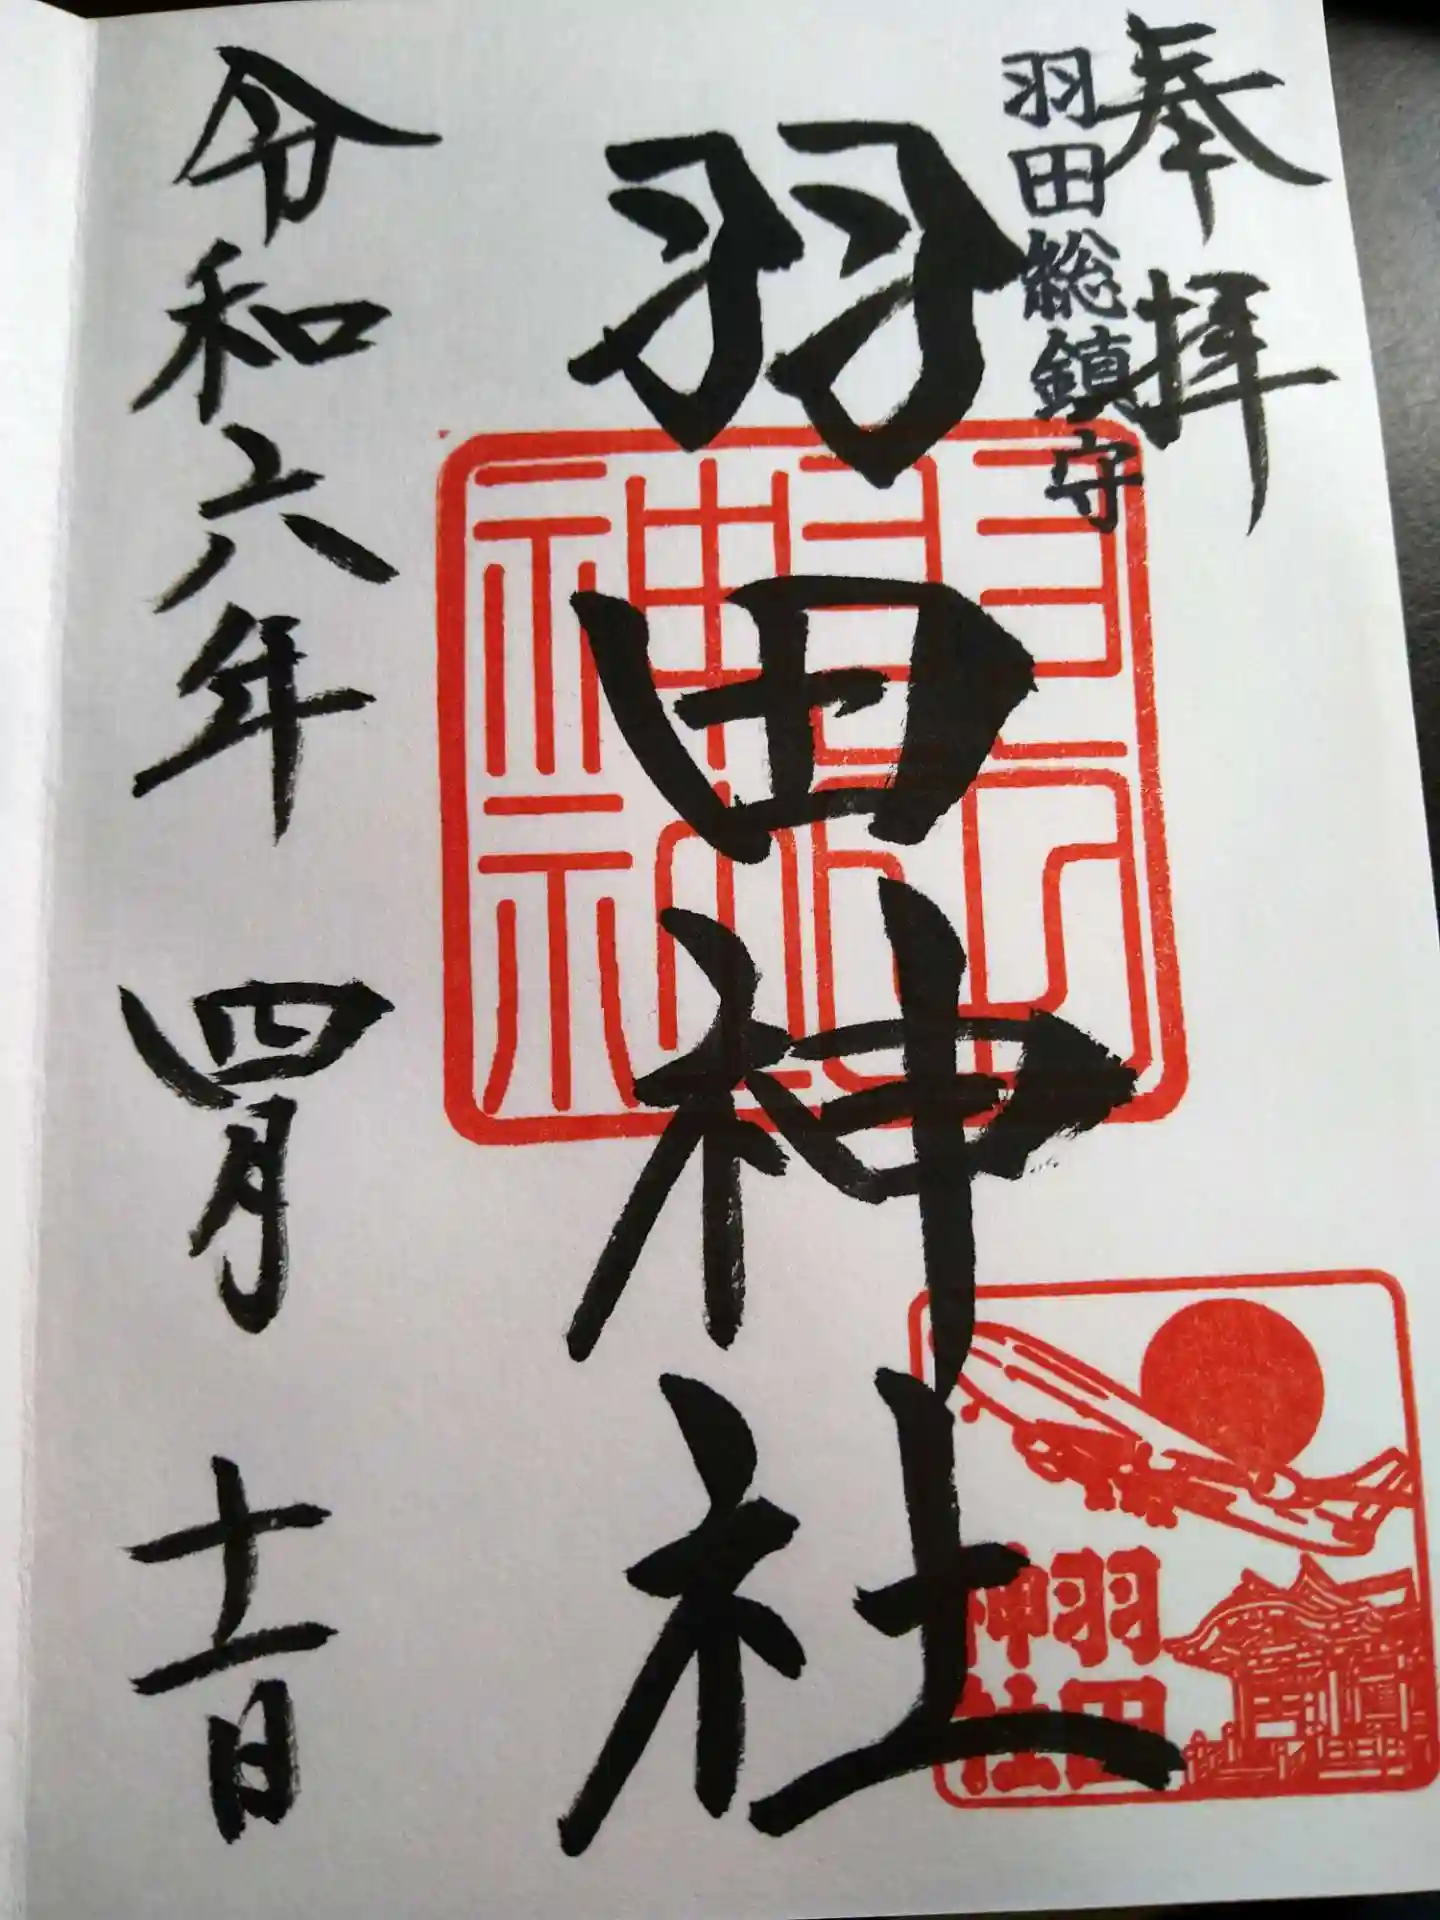 奉拝
羽田総鎮守
羽田神社
羽田
神社
羽田
神社
令和六年 四月 十一日